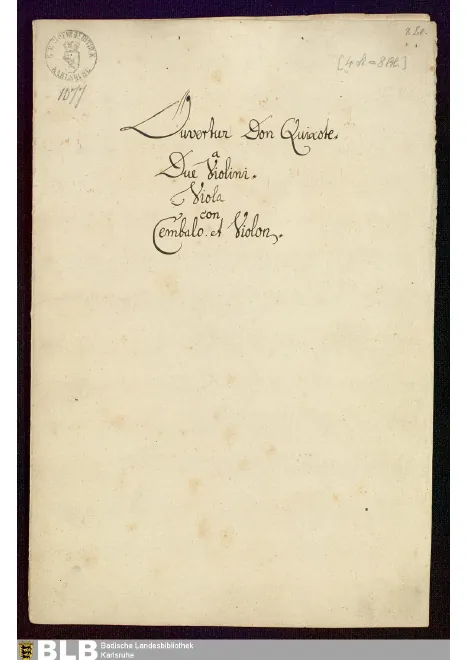 8 Bl.
[4 St. = 8 Bl.]
1077
Ouvertur Don Quixote.
a
Due Violini.
Viola
con
Cembalo. et Violon.
BLB Badische Landesbibliothek
Karlsruhe